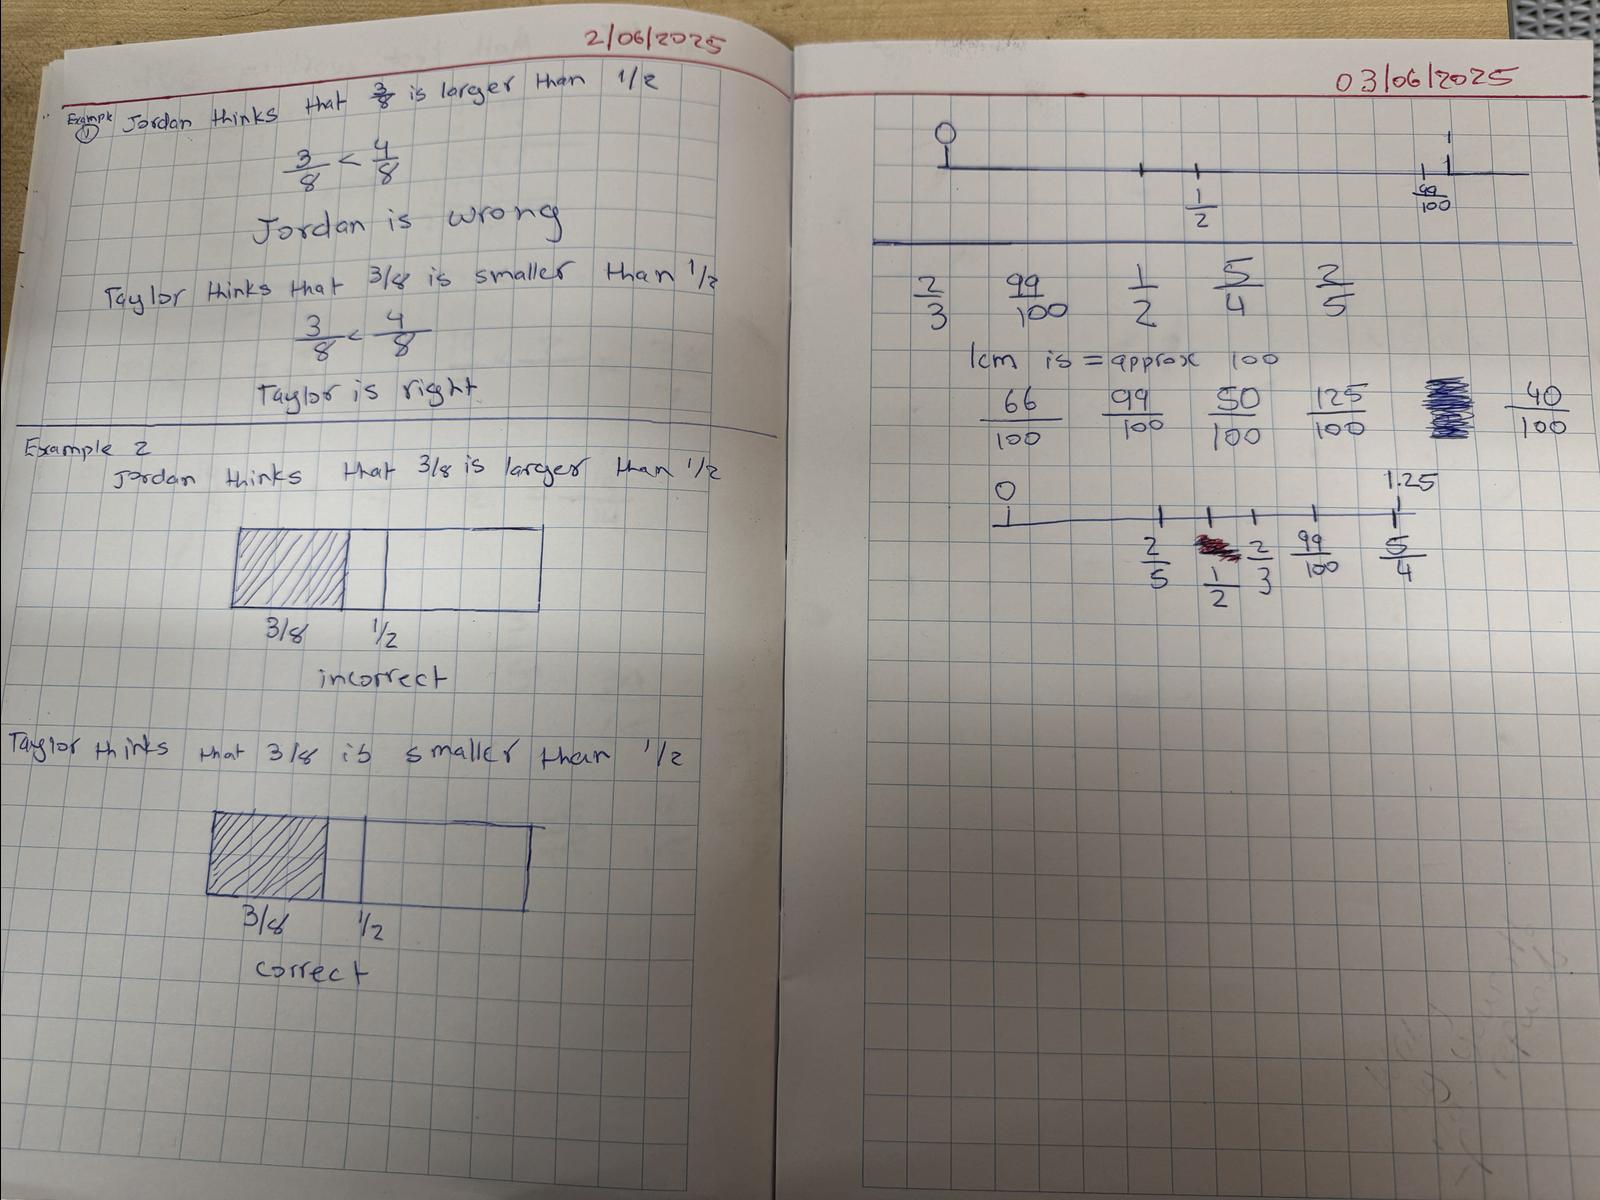 2/06/2025
Example ① Jordan thinks that 3/8 is larger than 1/2
3/8 < 4/8
Jordan is wrong
Taylor thinks that 3/8 is smaller than 1/2
3/8 < 4/8
Taylor is right
Example 2
Jordan thinks that 3/8 is larger than 1/2
3/8 1/2
incorrect
Taylor thinks that 3/8 is smaller than 1/2
3/8 1/2
correct
03/06/2025
0 1
1/2 99/100
2/3 99/100 1/2 5/4 2/5
1cm is = approx 100
66/100 99/100 50/100 125/100 40/100
0 1.25
2/5 1/2 2/3 99/100 5/4